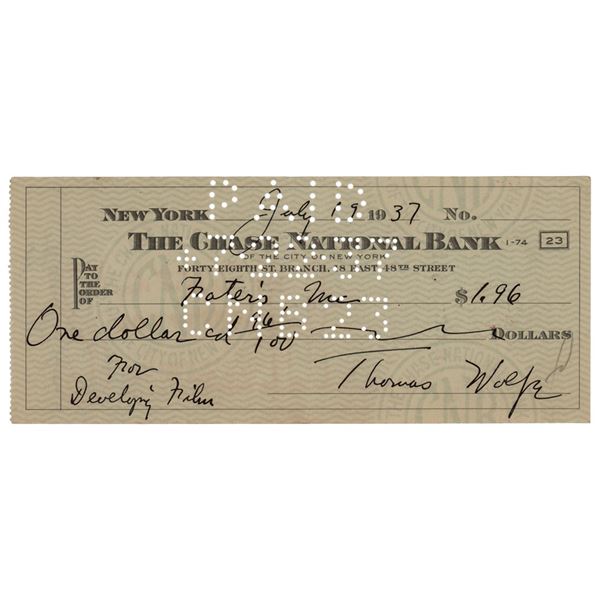 PAID
NEW YORK July 19 1937 No.
THE CHASE NATIONAL BANK 1-74 23
OF THE CITY OF NEW YORK
FORTY-EIGHTH ST. BRANCH, 18 EAST 48TH STREET
PAY TO THE ORDER OF Frater's Inc $1.96
CNB 23
One dollar and 96/100 DOLLARS
For
Developing Film
Thomas Wolfe